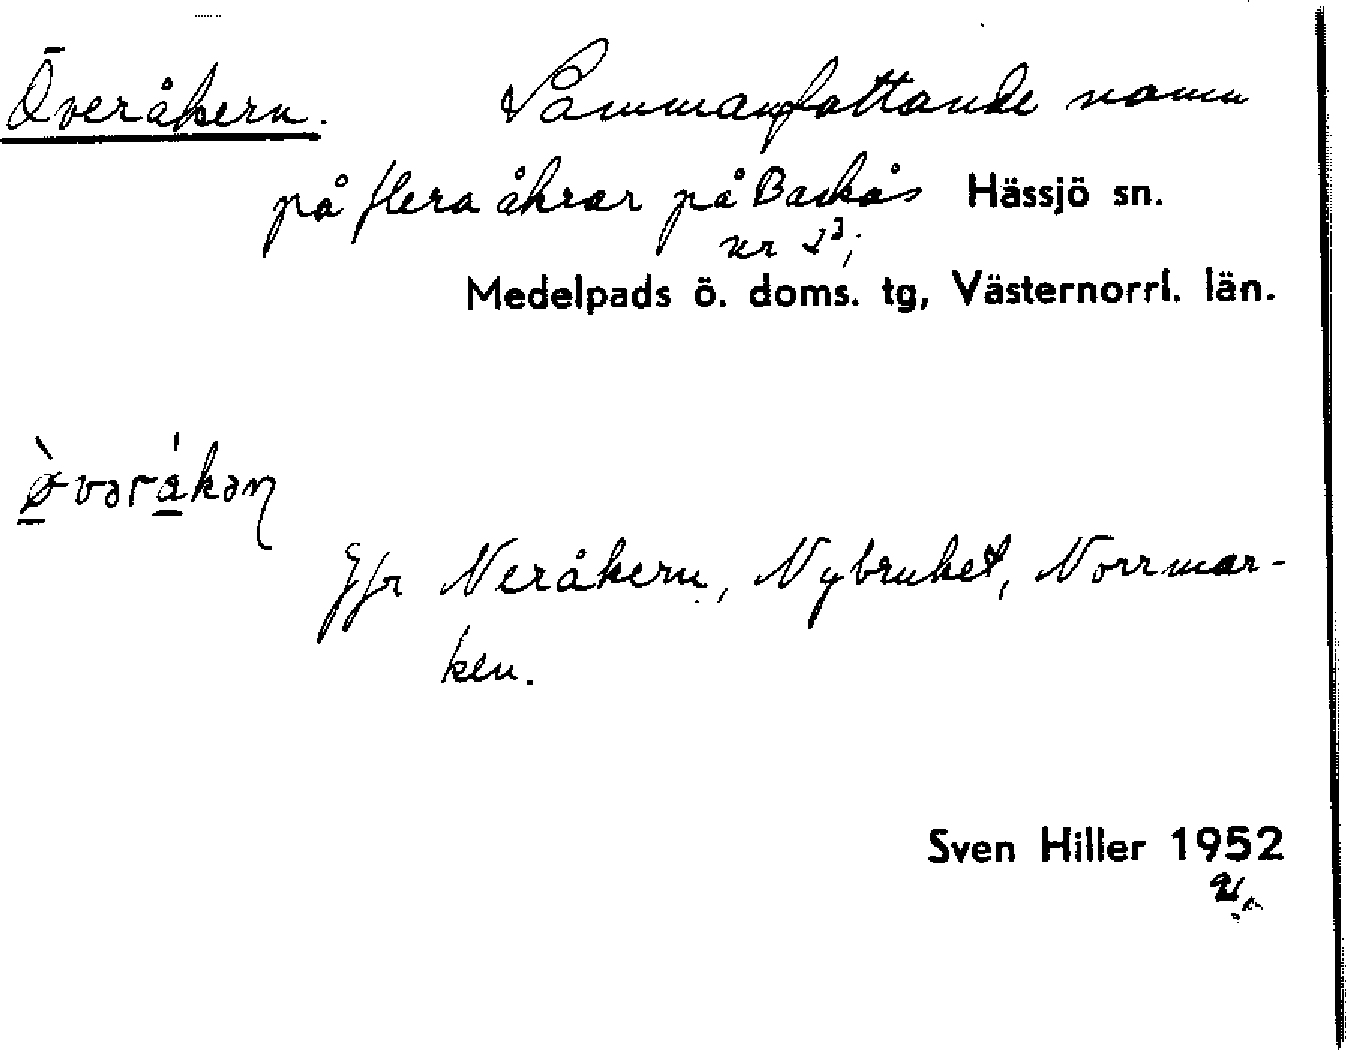 Överåkern. Sammanfattande namn
på flera åkrar på Backås Hässjö sn.
nr 2³;
Medelpads ö. doms. tg, Västernorrl. län.
Jfr Neråkern, Nybruket, Norrmar-
ken.
Sven Hiller 1952